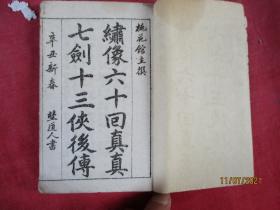 桃花館主撰
繡像六十回真真
七劍十三俠後傳
辛丑新春
道人書
11/07/2021